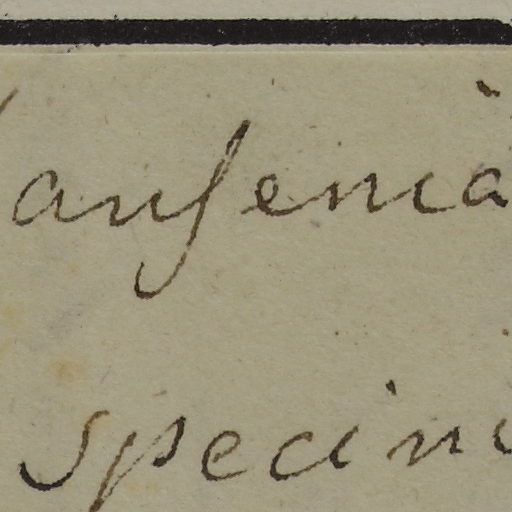 auſenia
specim